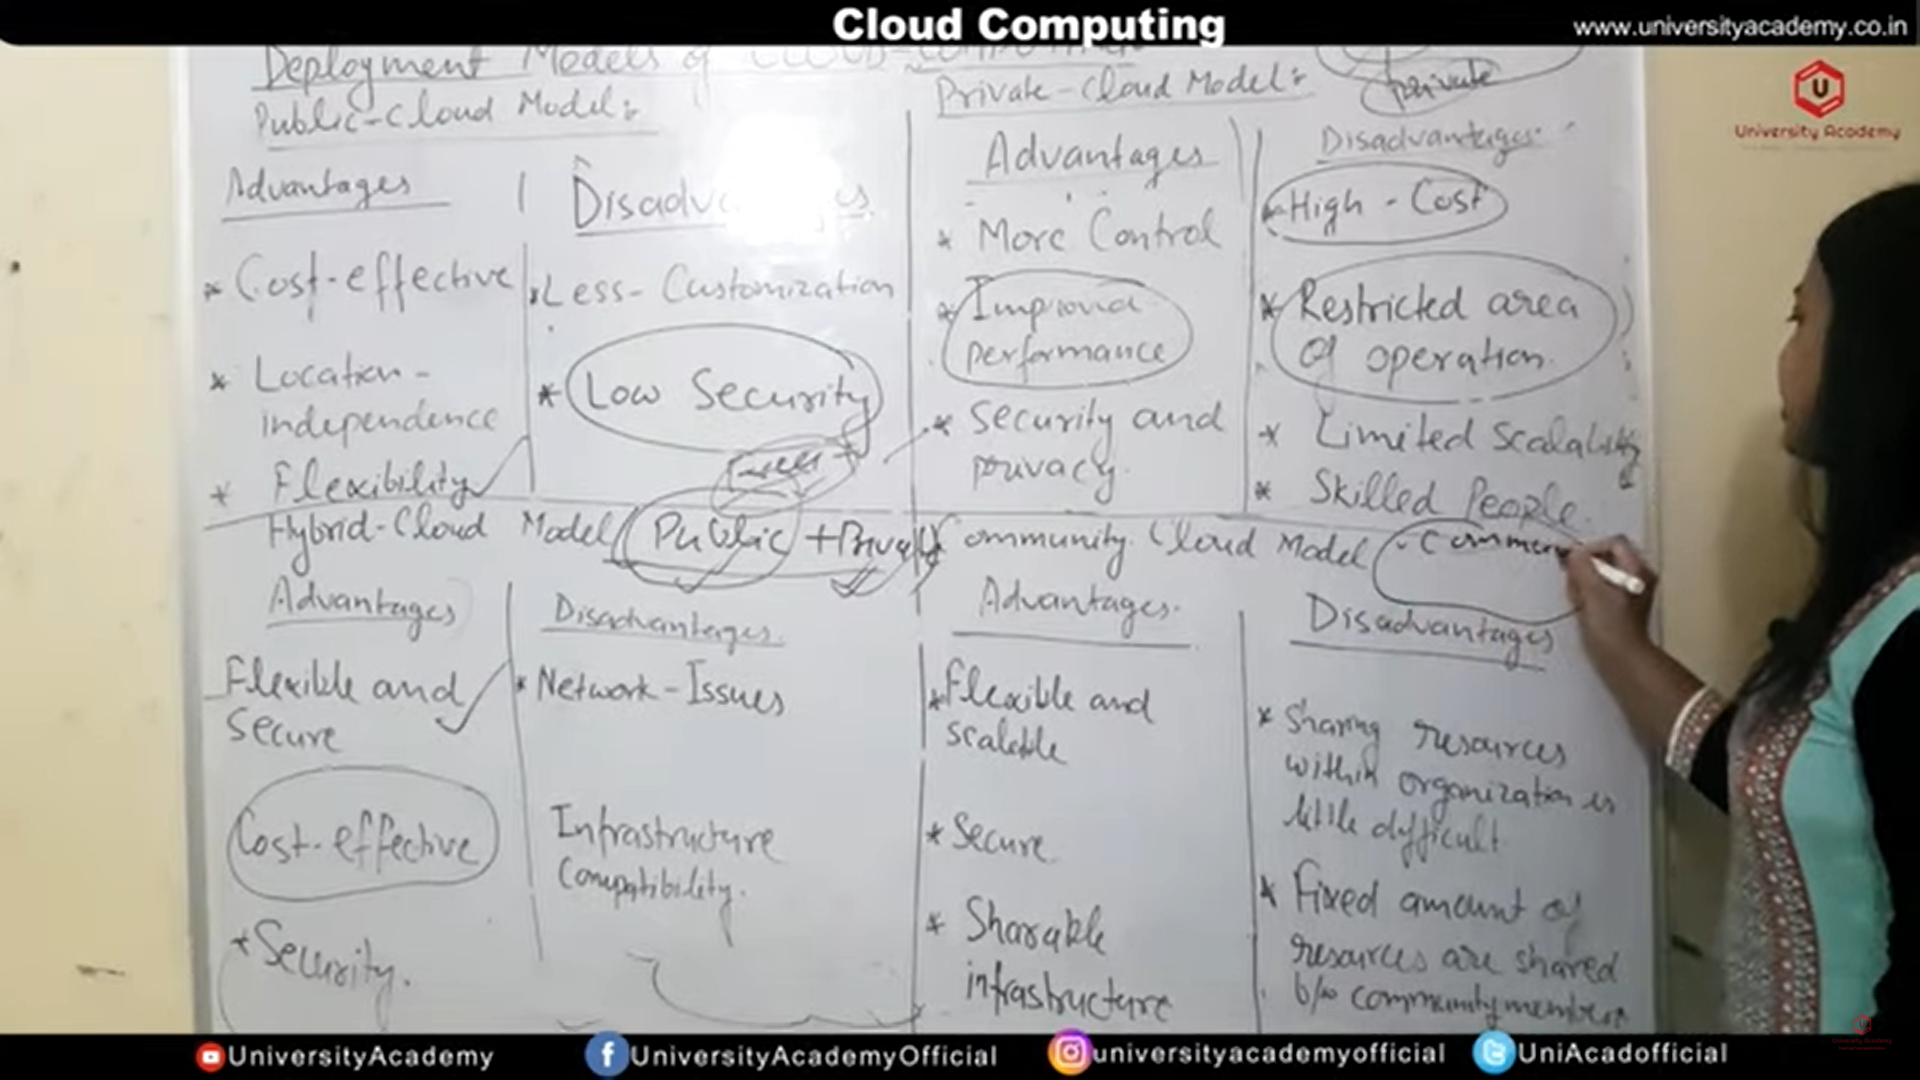 Cloud Computing
www.universityacademy.co.in
University Academy
Deployment Models of Cloud-Computing
Public-Cloud Model:
Advantages
* Cost-effective
* Location-
independence
* Flexibility
Disadvantages
* Less-Customization
* Low Security
Private-Cloud Model:
private
Advantages
* More Control
* Improved
performance
* Security and
privacy.
Disadvantages
* High-Cost
* Restricted area
of operation.
* Limited Scalability
* Skilled People.
Hybrid-Cloud Model (Public + Private)
Advantages
Flexible and
secure
Cost-effective
* Security.
Disadvantages.
* Network-Issues
Infrastructure
Compatibility.
Community Cloud Model
Advantages.
* Flexible and
scalable
* Secure
* Sharable
infrastructure
Disadvantages
* Sharing resources
within organization is
little difficult
* Fixed amount of
resources are shared
b/w community members
UniversityAcademy
UniversityAcademyOfficial
universityacademyofficial
UniAcadofficial